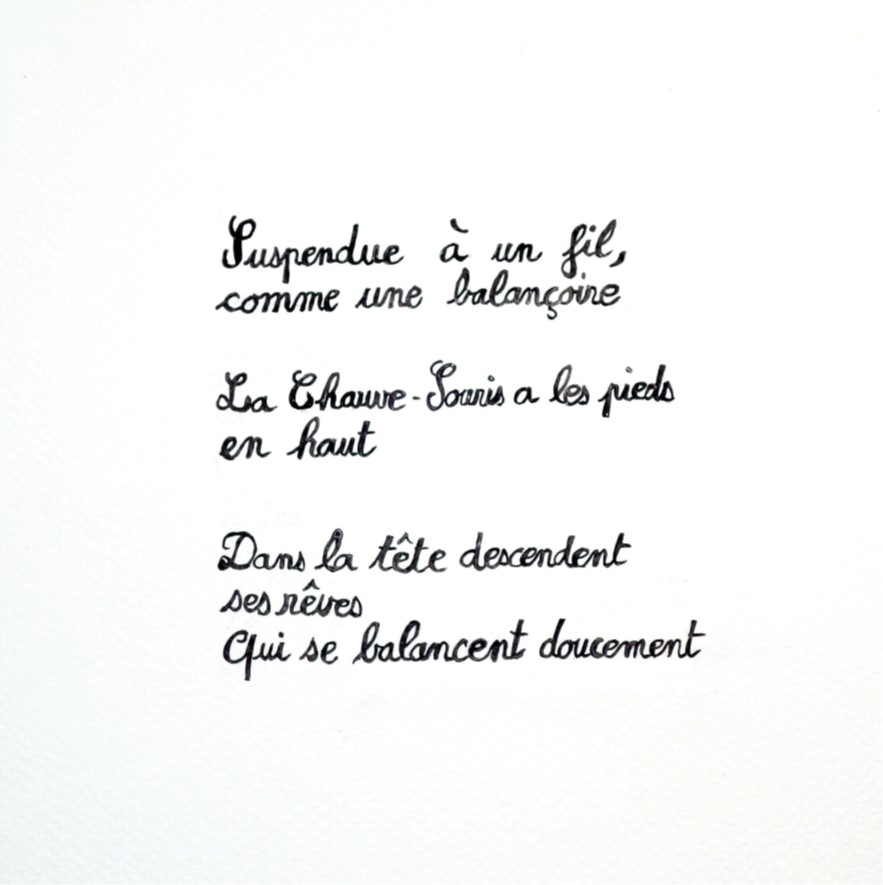 Suspendue à un fil,
comme une balançoire
La Chauve-Souris a les pieds
en haut
Dans la tête descendent
ses rêves
Qui se balancent doucement